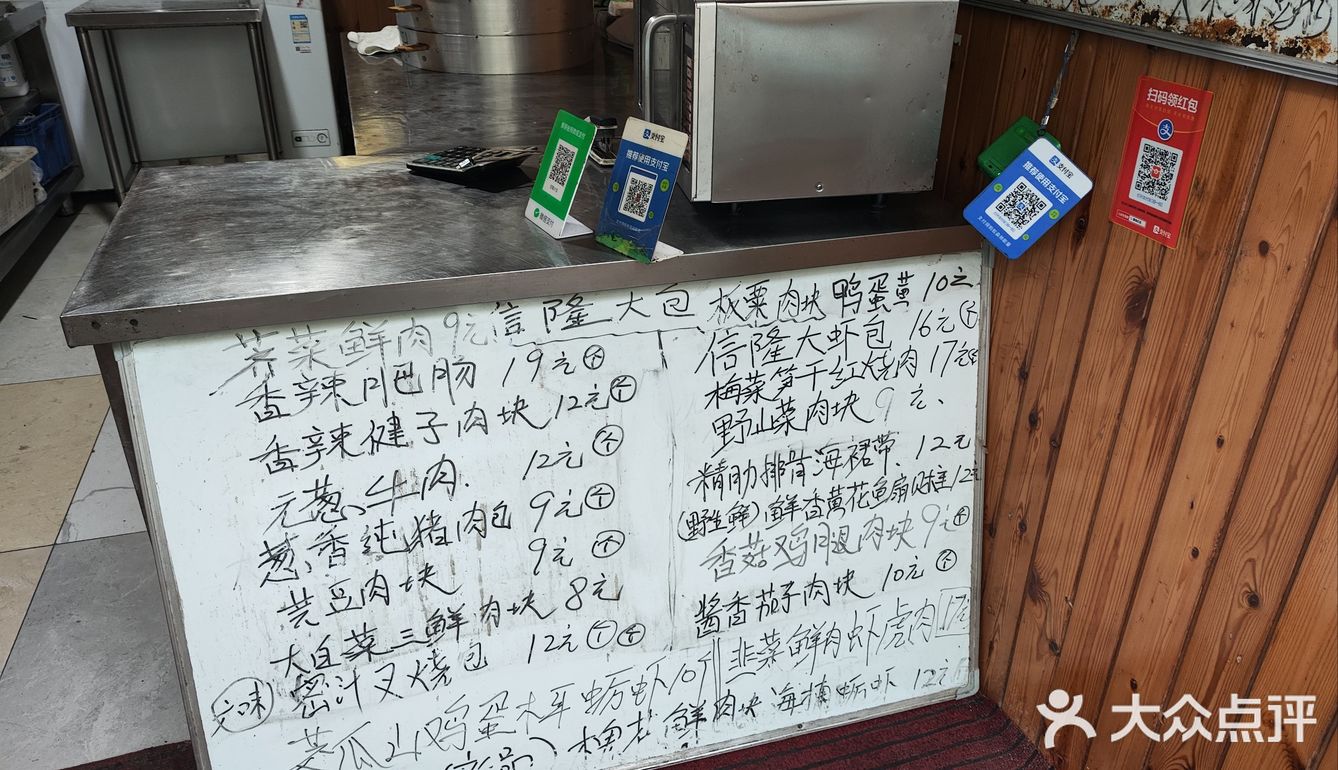 扫码领红包
支付宝
推荐使用支付宝
支付宝
推荐使用支付宝
微信支付
支付宝
信隆大包
荠菜鲜肉9元
香辣肥肠 19元个
香辣健子肉块 12元个
元葱、牛肉. 12元个
葱、香纯猪肉包 9元个
芸豆肉块 9元个
大白菜三鲜肉块 8元
密汁叉烧包 12元个个
板栗肉块鸭蛋黄 10元
信隆大虾包 16元个
梅菜笋干红烧肉 17元
野山菜肉块 9元、
精肋排骨海裙带、12元
(野生鲜)鲜香黄花鱼 12元
香菇鸡腿肉块 9元个
酱香茄子肉块 10元个
韭菜鲜肉虾虎肉 17元
鸡蛋木耳蛎虾 10元
鲜肉块海 蛎虾 12元
大众点评